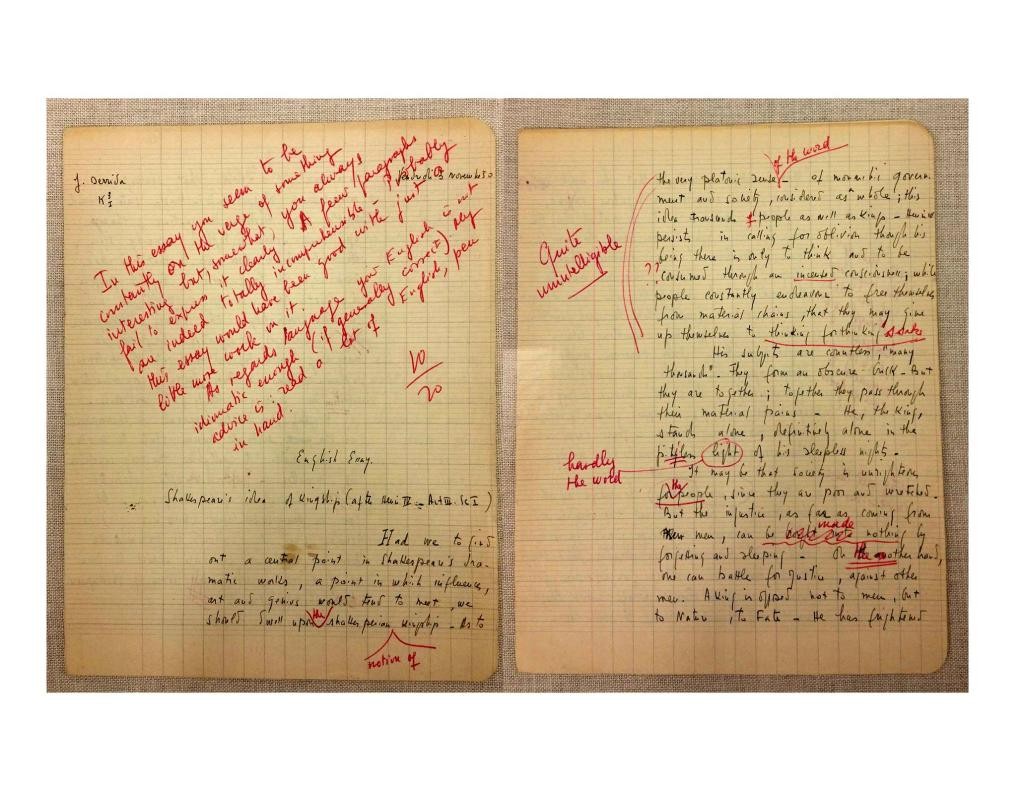 J. Derrida
K 3/I
Vendredi 3 novembre 50
In this essay you seem to be
constantly on the verge of something
interesting but, somewhat, you always
fail to express it clearly. A few paragraphs
are indeed totally incomprehensible.
this essay would have been good with just a
little more work in it. probably
As regards language your English is not
idiomatic enough (if generally correct). My
advice is: read a lot of English, pen
in hand.
10/20
English Essay.
Shakespear's idea of Kingship (after Henri IV. Act III. Sc I)
Had we to find
out a central point in Shakespear's dra-
matic works, a point in which influences,
art and genius would tend to meet, we
should dwell upon the shakesperian Kingship - As to
notion of
of the word
the very platonic sense - of monarchic govern
ment and society, considered as a whole; this
idea transcends people as well as kings - Henri
persists in calling for oblivion though his
being there is only to think and to be
consumed through an incensed consciousness; while
people constantly endeavour to free themselves
from material chains, that they may give
up themselves to thinking for thinking's sake
Quite
unintelligible
??
His subjects are countless, "many
thousands". They form an obscure bulk - But
they are together; together they pass through
their material pains - He, the King,
stands alone, definitively alone in the
pitiless light of his sleepless nights.
hardly
the word
It may be that society is unrighteous
for the people, since they are poor and wretched.
But the injustice, as far as coming from
men, can be made nothing by
forgetting and sleeping - On the another hand,
one can battle for justice, against other
men. A King is opposed not to men, but
to Nature, to Fate - He has frightened